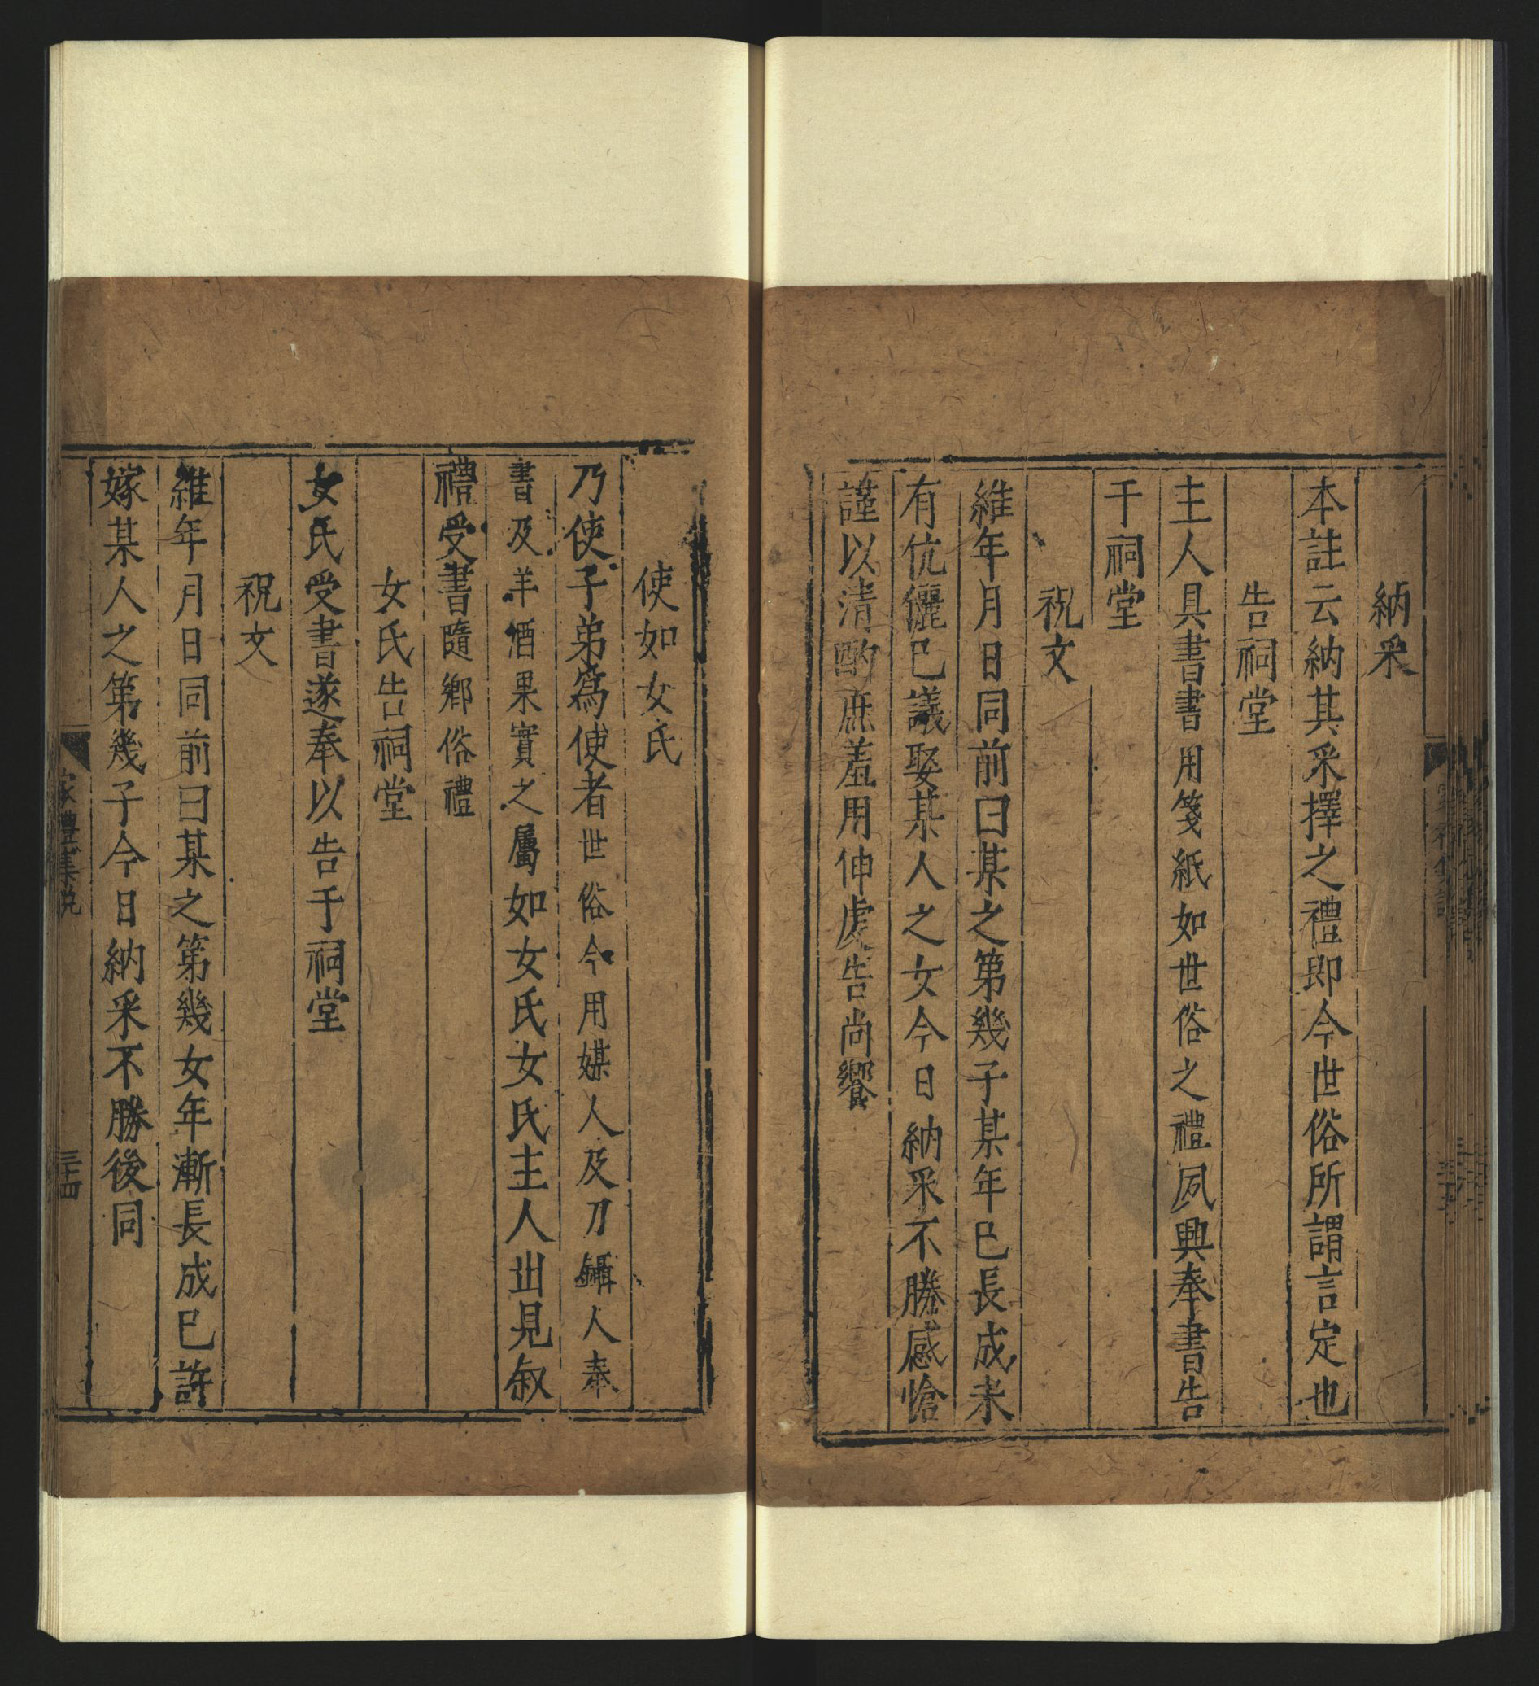 納采
本註云納其采擇之禮即今世俗所謂言定也
告祠堂
主人具書書用箋紙如世俗之禮夙興奉書告
于祠堂
祝文
維年月日同前曰某之第幾子某年已長成未
有伉儷已議娶某人之女今日納采不勝感愴
謹以清酌庶羞用伸虔告尚饗
使如女氏
乃使子弟爲使者世俗今用媒人及刀鑷人奉
書及羊酒果實之屬如女氏女氏主人出見叙
禮受書隨鄉俗禮
女氏告祠堂
女氏受書遂奉以告于祠堂
祝文
維年月日同前曰某之第幾女年漸長成已許
嫁某人之第幾子今日納采不勝後同
家禮集説
三十四